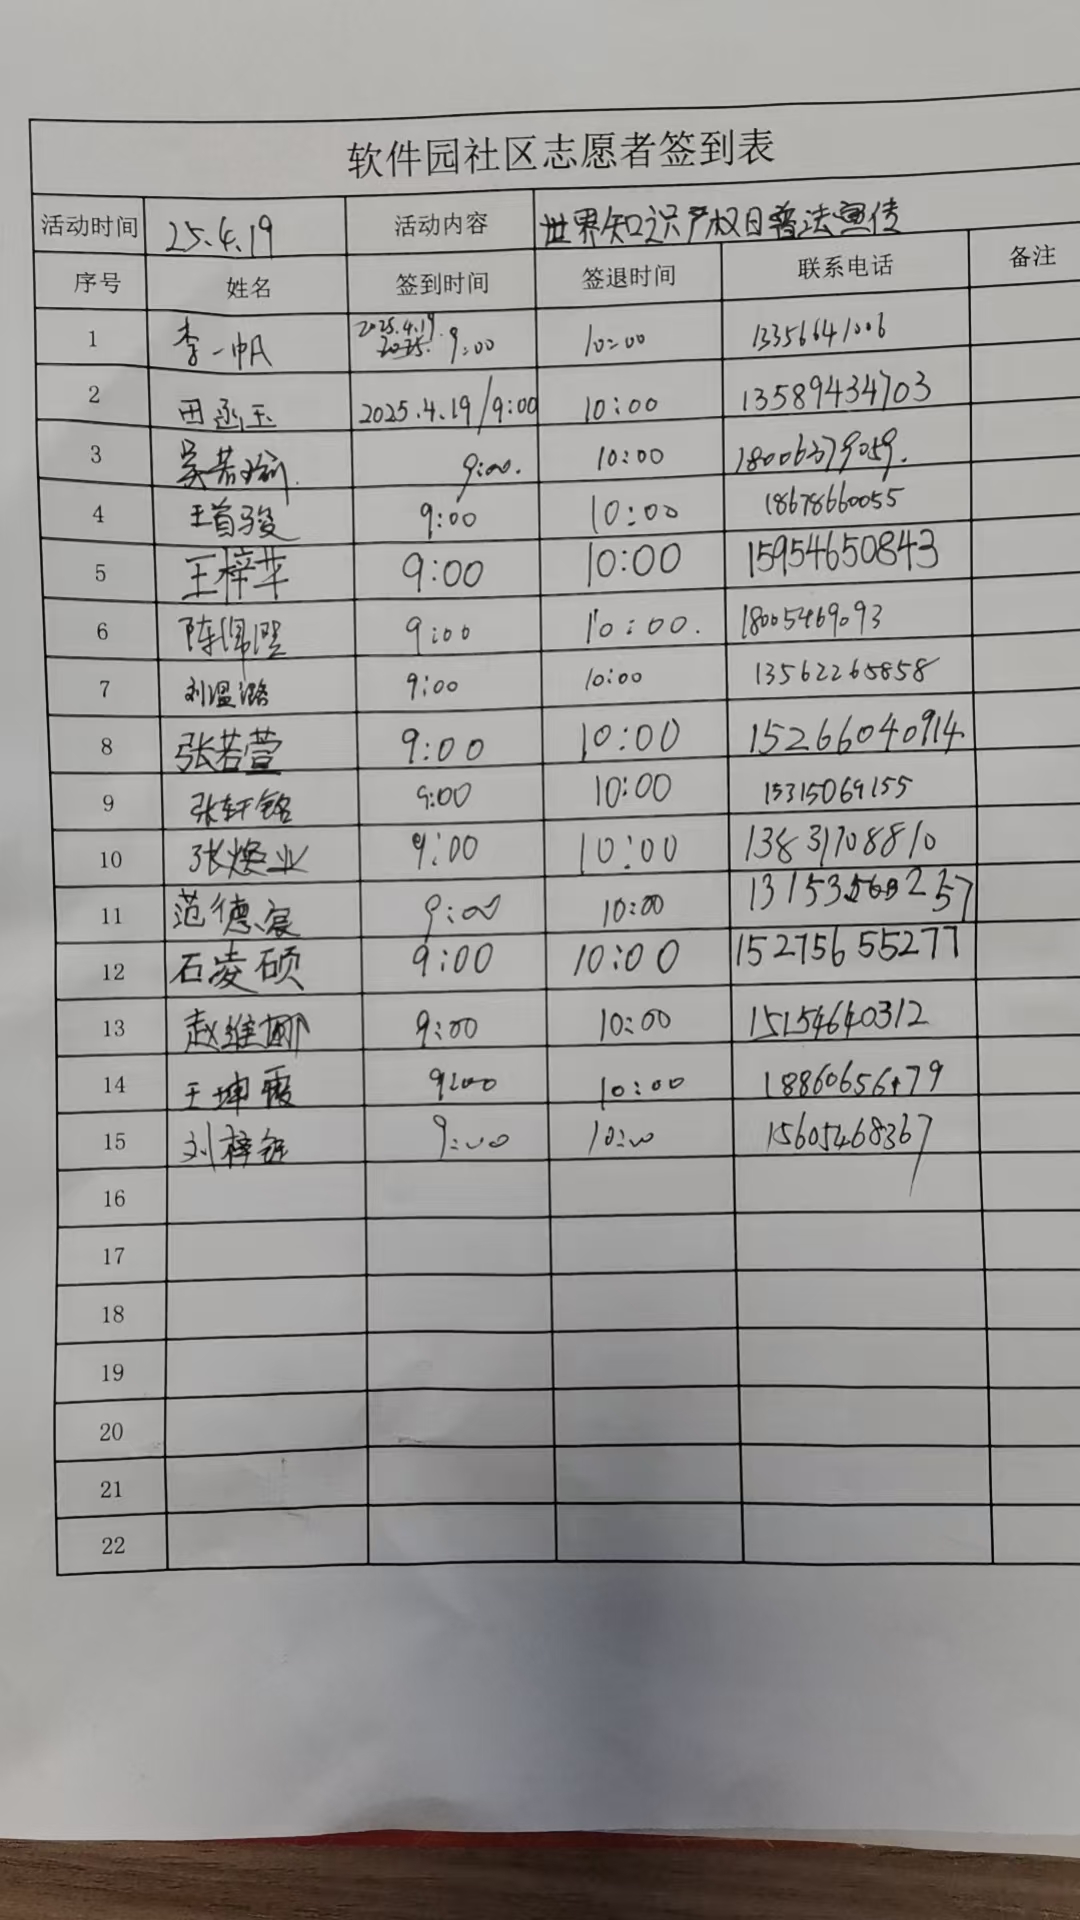 软件园社区志愿者签到表
活动时间 25.4.19 活动内容 世界知识产权日普法宣传
序号 姓名 签到时间 签退时间 联系电话 备注
1 李一帆 2025.4.19 9:00 10:00 13356641006
2 田函玉 2025.4.19/9:00 10:00 13589434703
3 吴若瑜 9:00. 10:00 18006379059.
4 王首骏 9:00 10:00 18678660055
5 王梓苹 9:00 10:00 15954650843
6 9:00 10:00. 18005469093
7 刘温潞 9:00 10:00 13562265858
8 张若萱 9:00 10:00 15266040914
9 张轩铭 9:00 10:00 15315069155
10 张焕业 9:00 10:00 13831708810
11 范德宸 9:00 10:00
12 石凌硕 9:00 10:00 15275655277
13 赵维娜 9:00 10:00 15154640312
14 王坤霞 9:00 10:00
15 刘梓钰 9:00 10:00 15605468367
16
17
18
19
20
21
22